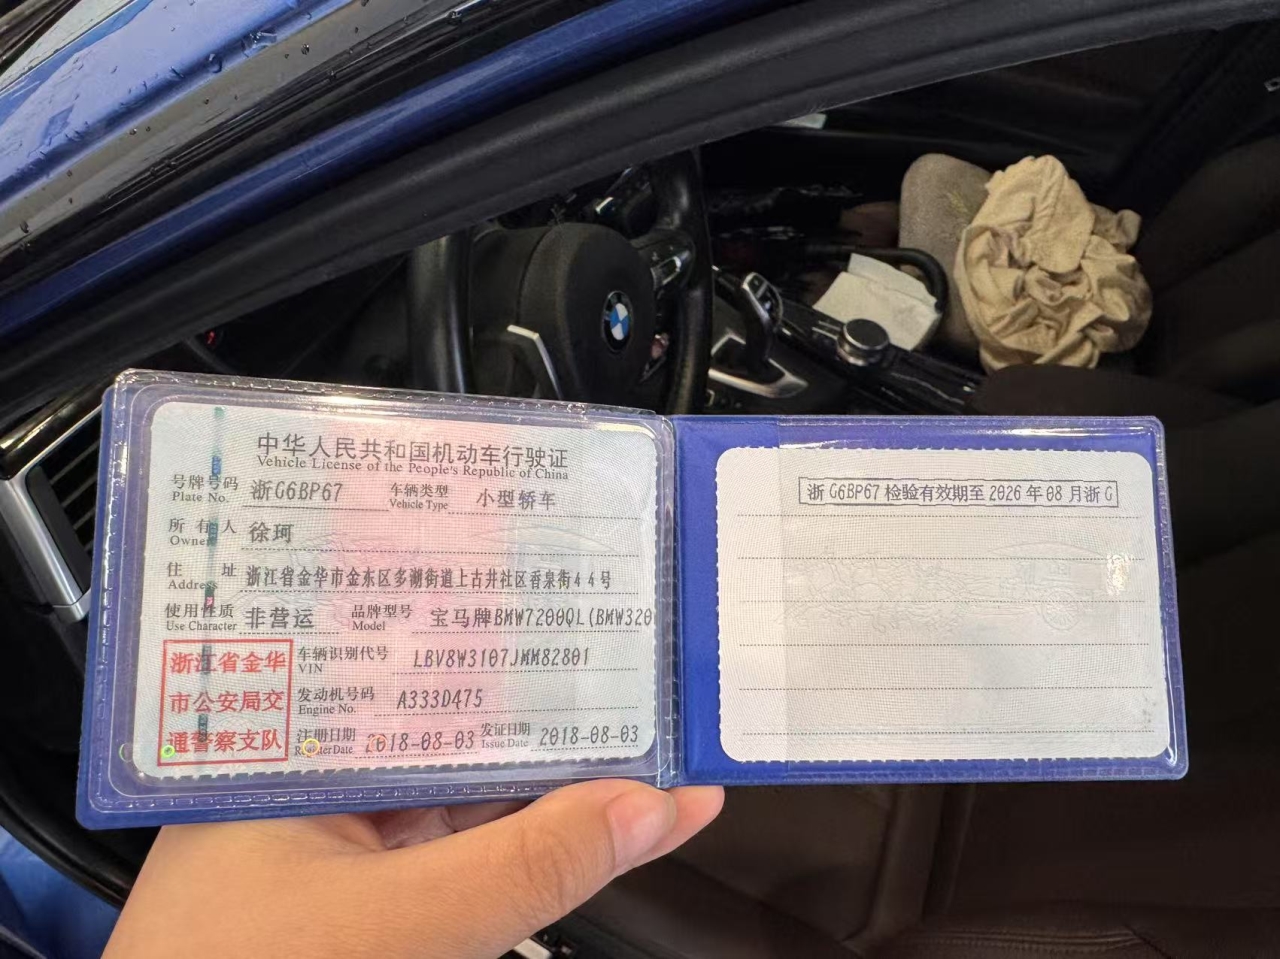 中华人民共和国机动车行驶证
Vehicle License of the People's Republic of China
号牌号码 浙G6BP67 车辆类型 小型轿车
Plate No. Vehicle Type
所有人 徐珂
Owner
住址 浙江省金华市金东区多湖街道上古井社区香泉街44号
Address
使用性质 非营运 品牌型号 宝马牌BMW7200QL(BMW320
Use Character Model
浙江省金华
市公安局交
通警察支队
车辆识别代号 LBV8W3107JMM82801
VIN
发动机号码 A333D475
Engine No.
注册日期 2018-08-03 发证日期 2018-08-03
Register Date Issue Date
浙G6BP67 检验有效期至 2026 年 08 月浙G